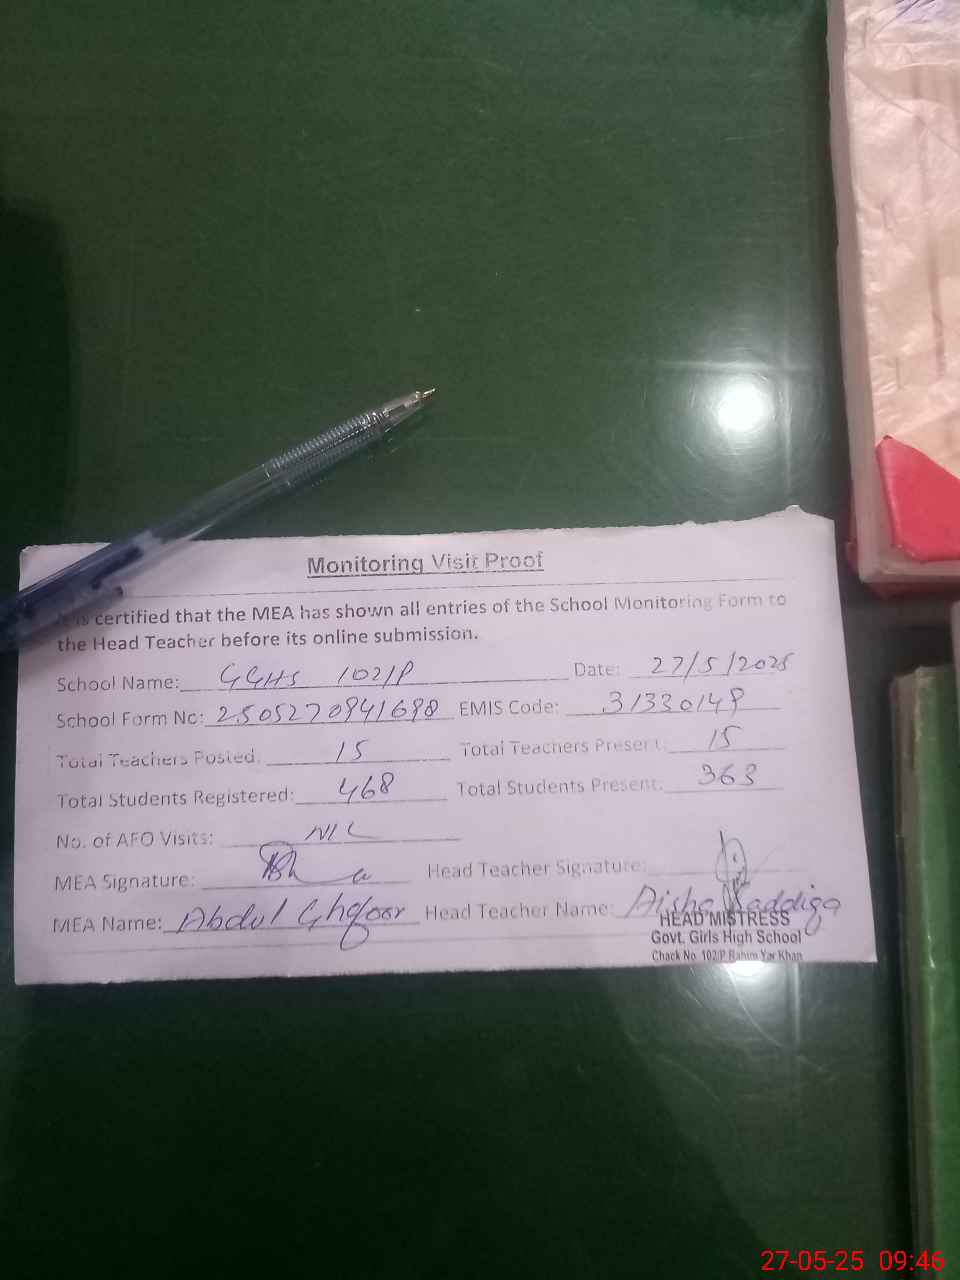 Monitoring Visit Proof
is certified that the MEA has shown all entries of the School Monitoring Form to
the Head Teacher before its online submission.
School Name: GGHS 102/P Date: 27/5/2025
School Form No: 2505270941698 EMIS Code: 31330149
Total Teachers Posted: 15 Total Teachers Present: 15
Total Students Registered: 468 Total Students Present: 363
No. of AEO Visits: NIL
MEA Signature: Head Teacher Signature:
MEA Name: Abdul Ghafoor Head Teacher Name: Aisha Saddiqa
HEAD MISTRESS
Govt. Girls High School
Chack No. 102/P Rahim Yar Khan
27-05-25 09:46